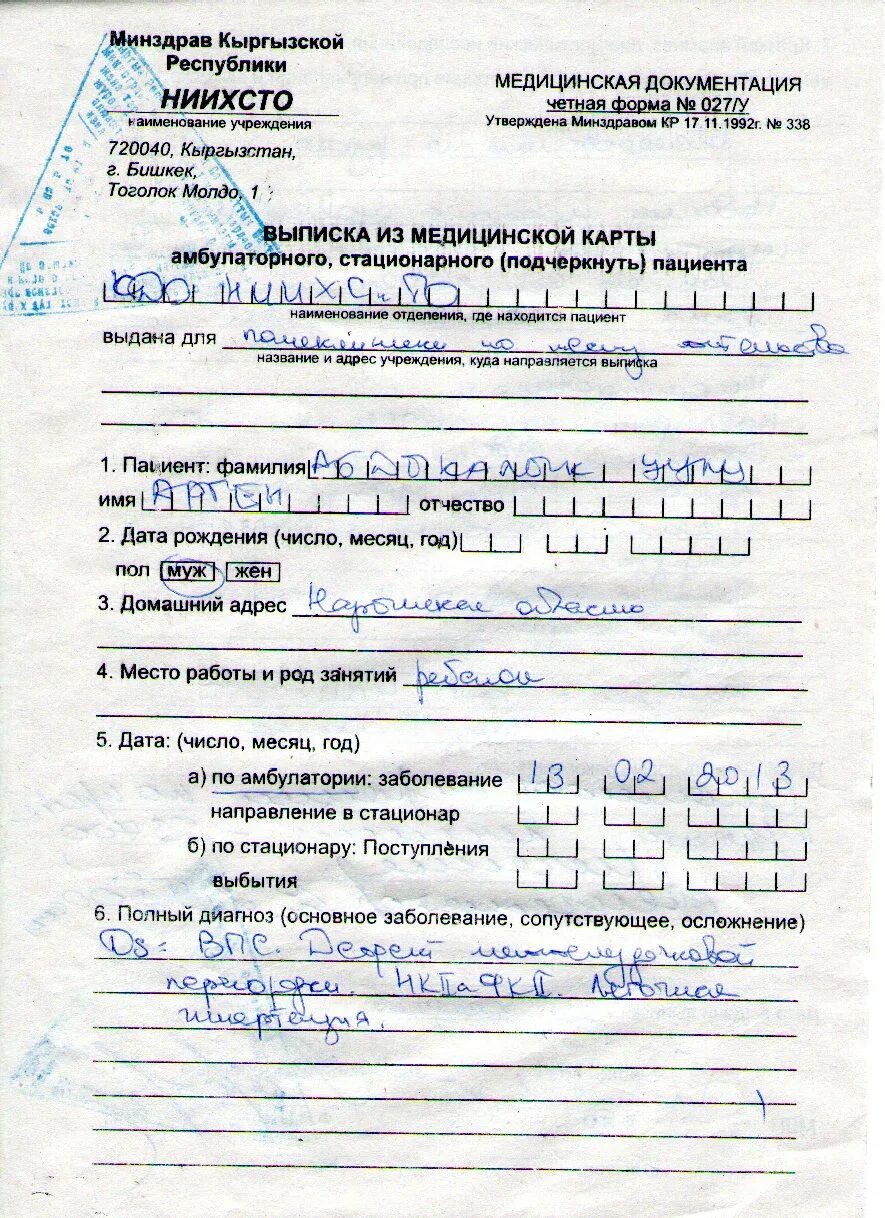 Минздрав Кыргызской
Республики
НИИХСТО
наименование учреждения
720040, Кыргызстан,
г. Бишкек,
Тоголок Молдо, 1
МЕДИЦИНСКАЯ ДОКУМЕНТАЦИЯ
четная форма № 027/У
Утверждена Минздравом КР 17.11.1992г. № 338
ВЫПИСКА ИЗ МЕДИЦИНСКОЙ КАРТЫ
амбулаторного, стационарного (подчеркнуть) пациента
КДО НИИХСиТО
наименование отделения, где находится пациент
выдана для поликлиники по месту жительства
название и адрес учреждения, куда направляется выписка
1. Пациент: фамилия АБДЫКАЛЫК уулу
имя АРГЕН отчество
2. Дата рождения (число, месяц, год)
пол муж жен
3. Домашний адрес Нарынская область
4. Место работы и род занятий ребенок
5. Дата: (число, месяц, год)
а) по амбулатории: заболевание 13 02 2013
направление в стационар
б) по стационару: Поступления
выбытия
6. Полный диагноз (основное заболевание, сопутствующее, осложнение)
Ds: ВПС. Дефект межжелудочковой
перегородки. НКIIа ФКII. Легочная
гипертензия.